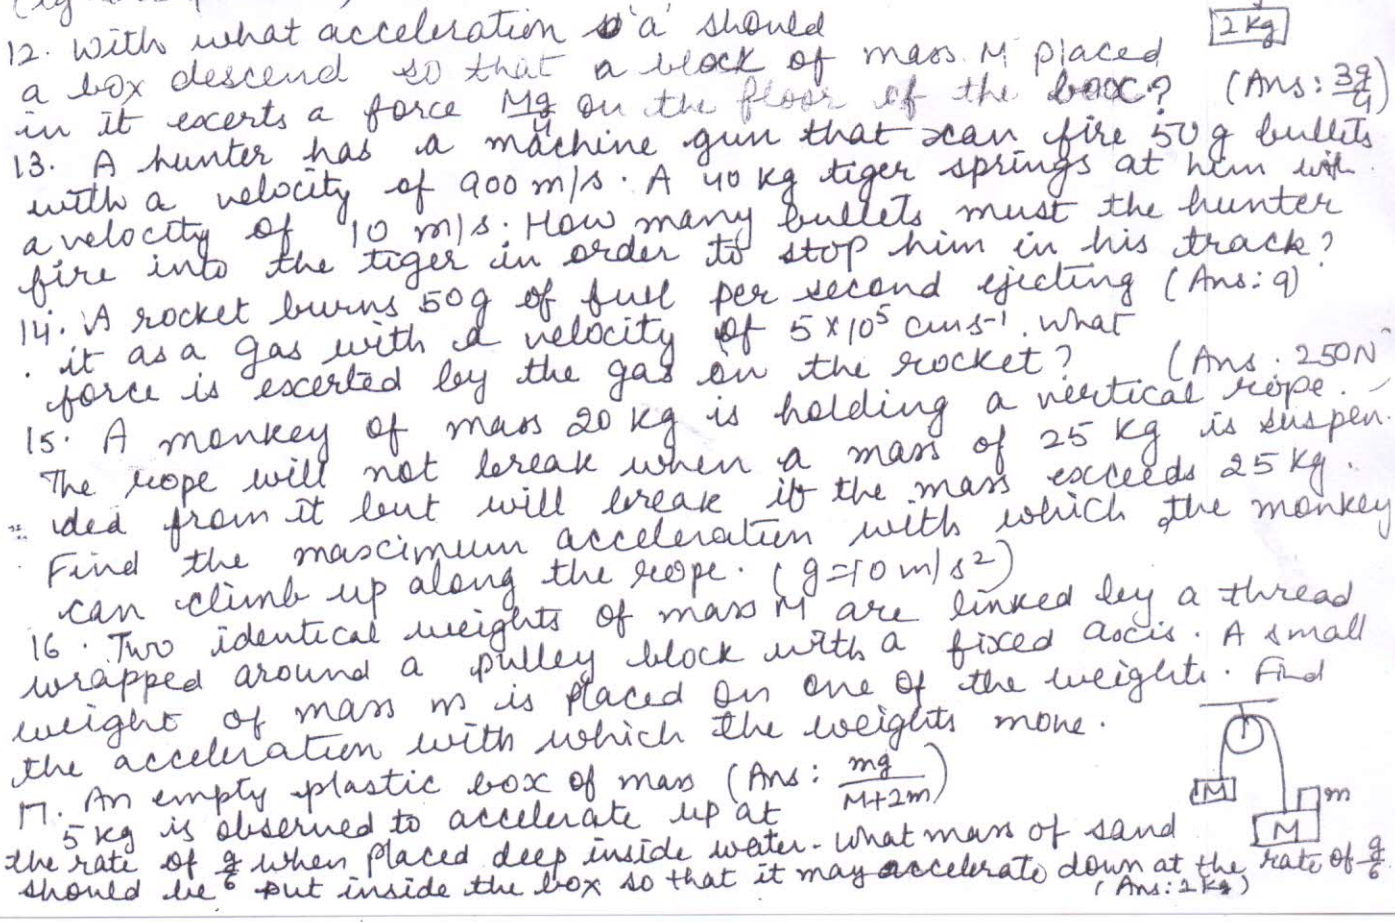 12. With what acceleration 'a' should
2 Kg
a box descend so that a block of mass M placed
in it exerts a force Mg/4 on the floor of the box? (Ans: 3g/4)
13. A hunter has a machine gun that can fire 50 g bullets
with a velocity of 900 m/s. A 40 kg tiger springs at him with
a velocity of 10 m/s. How many bullets must the hunter
fire into the tiger in order to stop him in his track?
(Ans: 9)
14. A rocket burns 50g of fuel per second ejecting
it as a gas with a velocity of 5 × 10⁵ cms⁻¹. What
force is exerted by the gas on the rocket? (Ans. 250N
15. A monkey of mass 20 kg is holding a vertical rope.
The rope will not break when a mass of 25 kg is suspen-
ded from it but will break if the mass exceeds 25 kg.
Find the maximum acceleration with which the monkey
can climb up along the rope. (g=10 m/s²)
16. Two identical weights of mass M are linked by a thread
wrapped around a pulley block with a fixed axis. A small
weight of mass m is placed on one of the weights. Find
the acceleration with which the weights move.
(Ans: mg/M+2m)
M
m
M
17. An empty plastic box of mass
5 kg is observed to accelerate up at
the rate of g/6 when placed deep inside water. What mass of sand
should be put inside the box so that it may accelerate down at the rate of g/6
(Ans: 2 kg)